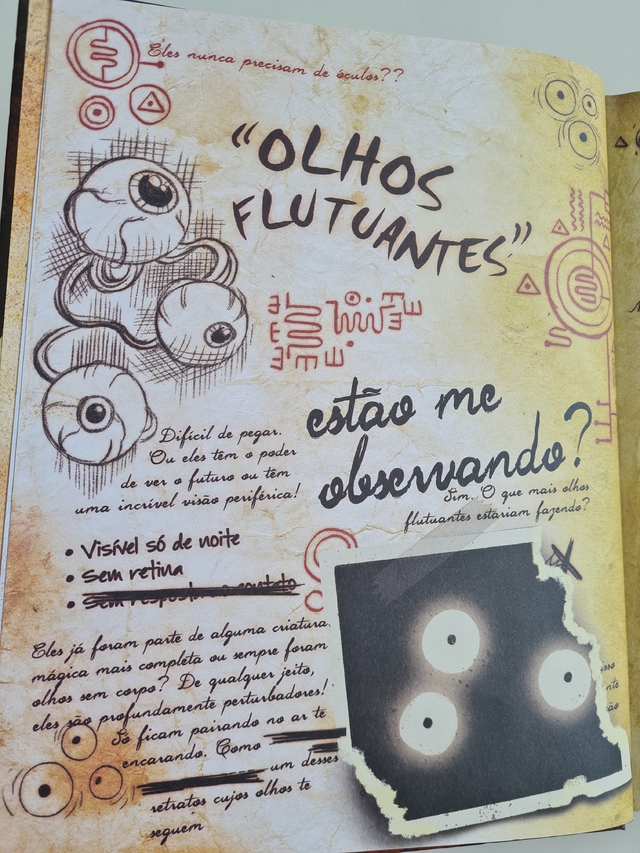 Eles nunca precisam de óculos??
“OLHOS
FLUTUANTES”
estão me
observando?
Sim. O que mais olhos
flutuantes estariam fazendo?
Difícil de pegar.
Ou eles têm o poder
de ver o futuro ou têm
uma incrível visão periférica!
• Visível só de noite
• Sem retina
• Sem resposta ao contato
Eles já foram parte de alguma criatura
mágica mais completa ou sempre foram
olhos sem corpo? De qualquer jeito,
eles são profundamente perturbadores!
Só ficam pairando no ar te
encarando. Como
um desses
retratos cujos olhos te
seguem